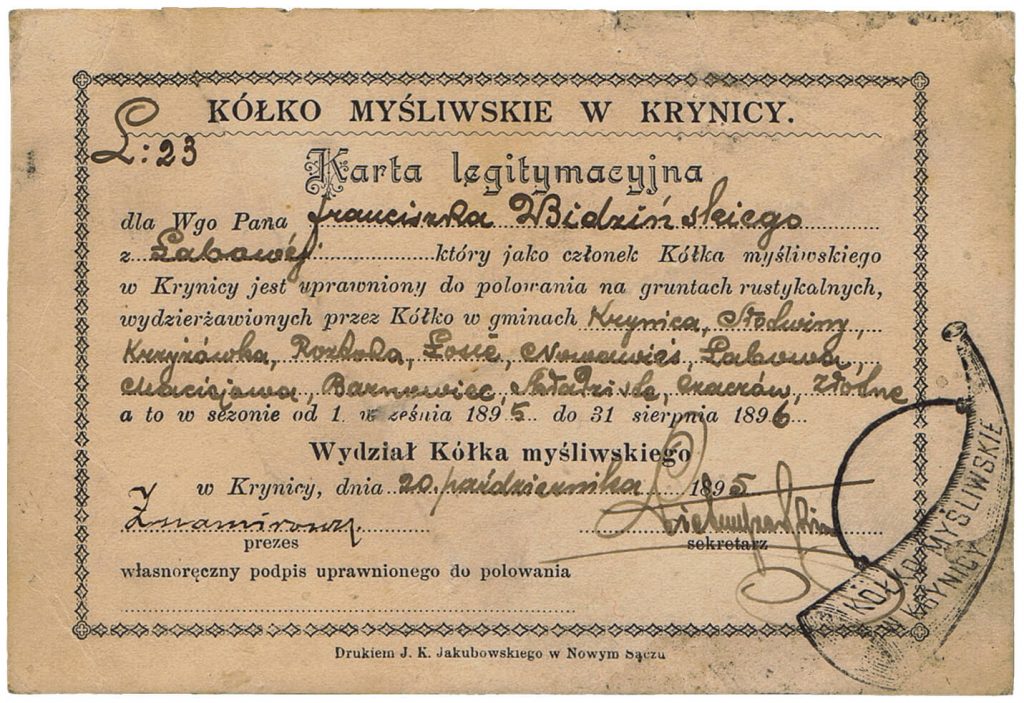 KÓŁKO MYŚLIWSKIE W KRYNICY.
L: 23
Karta legitymacyjna
dla Wgo Pana Franciszka Widzińskiego
z Łabowéj który jako członek Kółka myśliwskiego
w Krynicy jest uprawniony do polowania na gruntach rustykalnych,
wydzierżawionych przez Kółko w gminach Krynica, Słodwiny,
Krzyżówka, Roztoka, Łosie, Nowawieś, Łabowa,
Maciejowa, Barnowiec, Składziste, Czaczów, Złotne
a to w sezonie od 1. września 1895 do 31 sierpnia 1896
Wydział Kółka myśliwskiego
w Krynicy, dnia 20. października 1895
prezes sekretarz
własnoręczny podpis uprawnionego do polowania
KÓŁKO MYŚLIWSKIE
W KRYNICY
Drukiem J. K. Jakubowskiego w Nowym Sączu